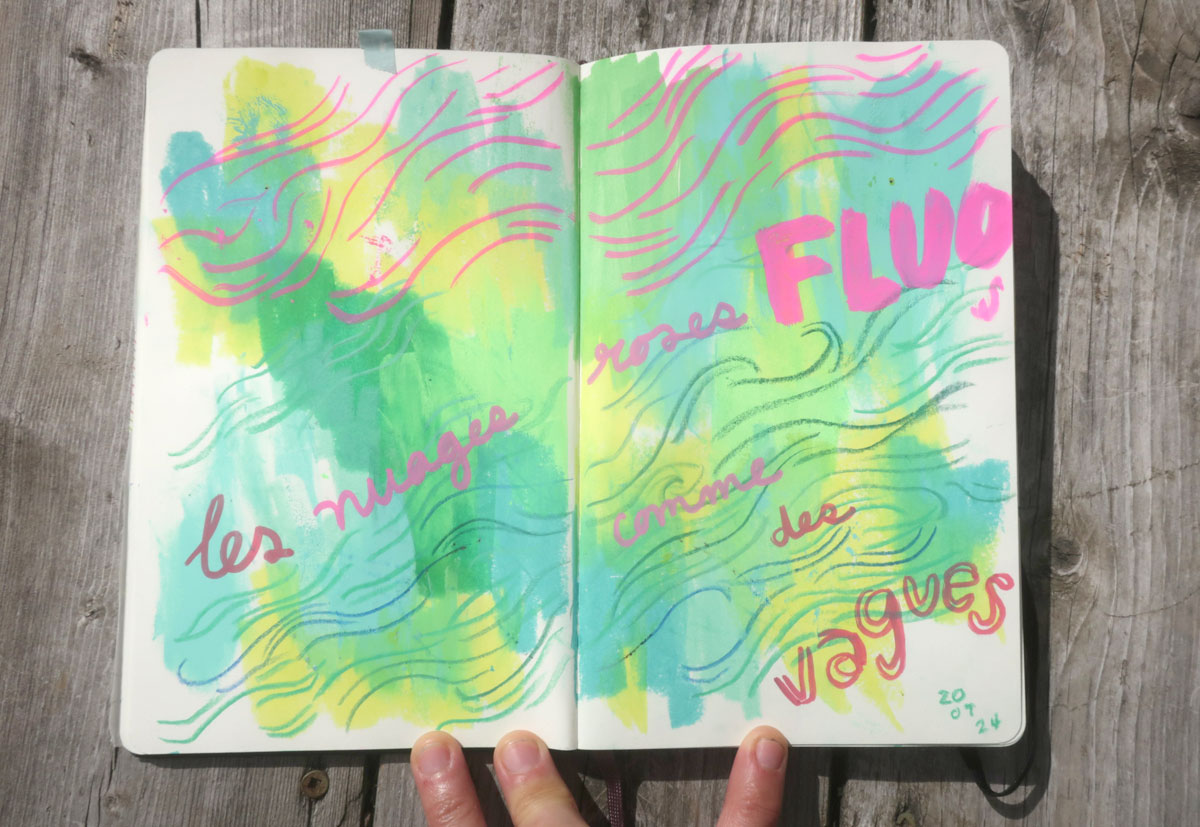 les nuages
roses FLUO
comme des
vagues
20
24